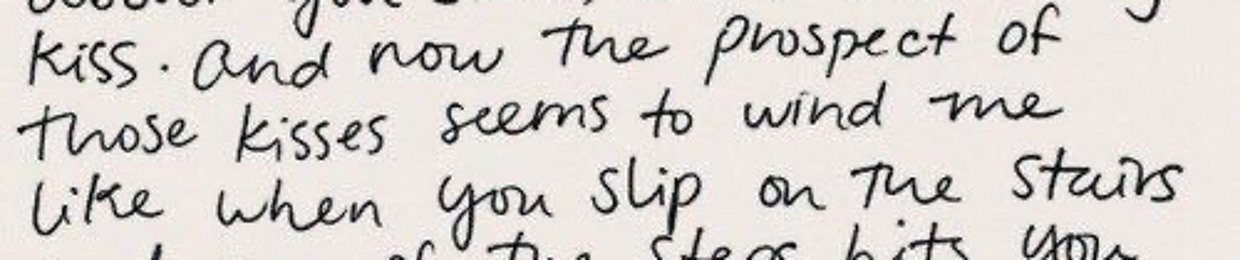 kiss. And now the prospect of
those kisses seems to wind me
like when you slip on the stairs
of the steps hits you